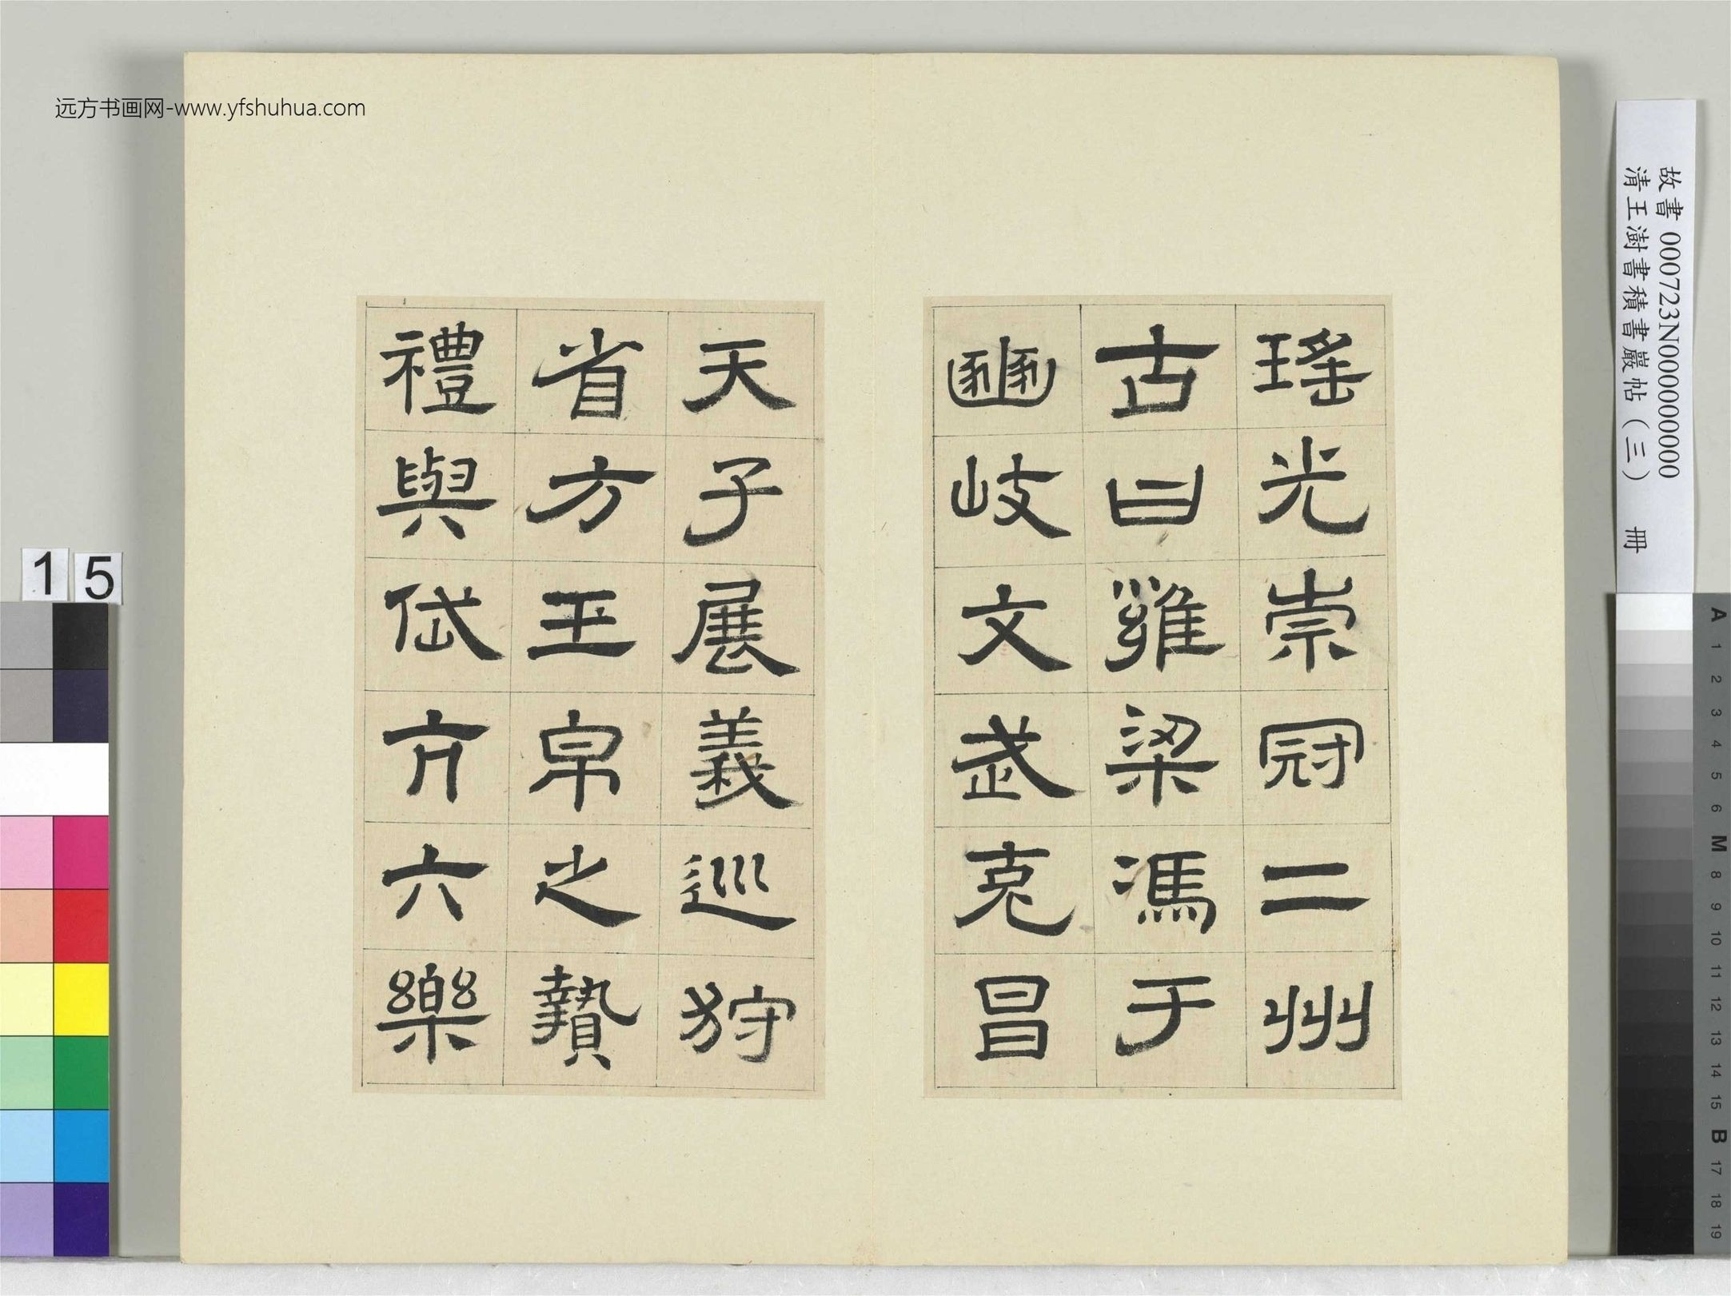 远方书画网-www.yfshuhua.com
故書 000723N000000000
清王澍書積書巖帖（三） 冊
瑤光崇冠二州
古曰雍梁馮于
豳岐文武克昌
天子展義巡狩
省方玉帛之贄
禮與岱亢六樂
15
A 1 2 3 4 5 6 M 8 9 10 11 12 13 14 15 B 17 18 19